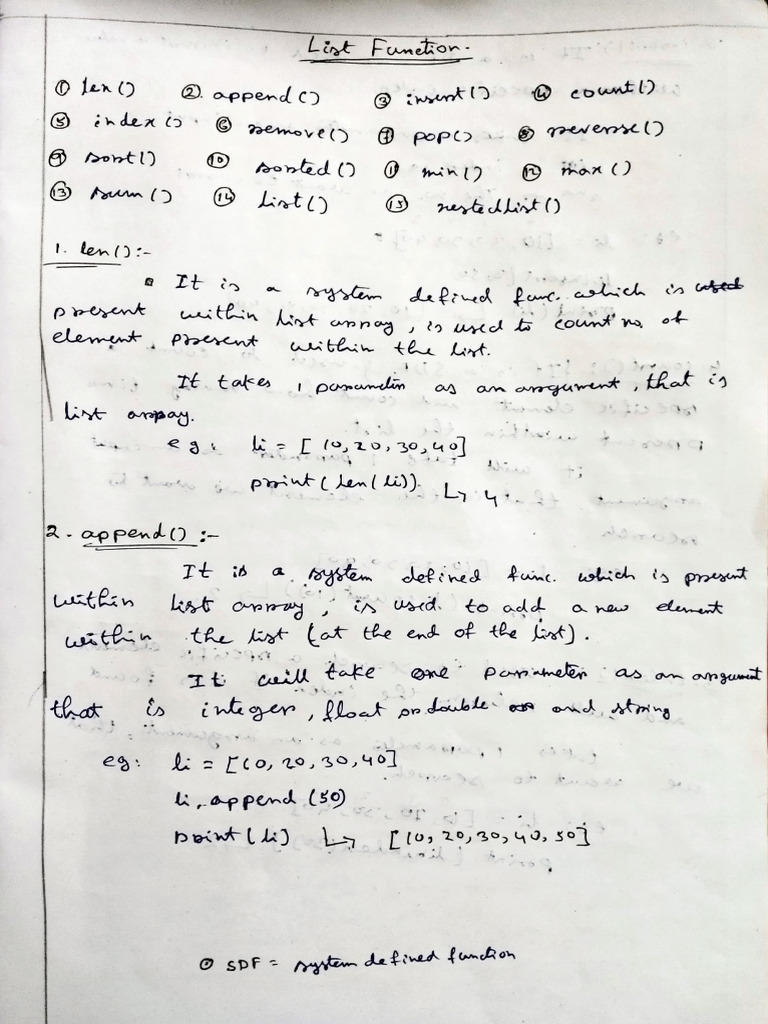 List Function.
① len() ② append() ③ insert() ④ count()
⑤ index() ⑥ remove() ⑦ pop() ⑧ reverse()
⑨ sort() ⑩ sorted() ⑪ min() ⑫ max()
⑬ sum() ⑭ list() ⑮ nestedlist()
1. len():-
It is a system defined func. which is used
present within list array, is used to count no. of
element present within the list.
It takes 1 parameter as an argument, that is
list array.
eg: li = [10,20,30,40]
print(len(li)) ↳ 4
2. append() :-
It is a system defined func. which is present
within list array, is used to add a new element
within the list (at the end of the list).
It will take one parameter as an argument
that is integer, float or double and string
eg: li = [10, 20, 30, 40]
li.append(50)
print(li) ↳ [10, 20, 30, 40, 50]
⊙ SDF = system defined function